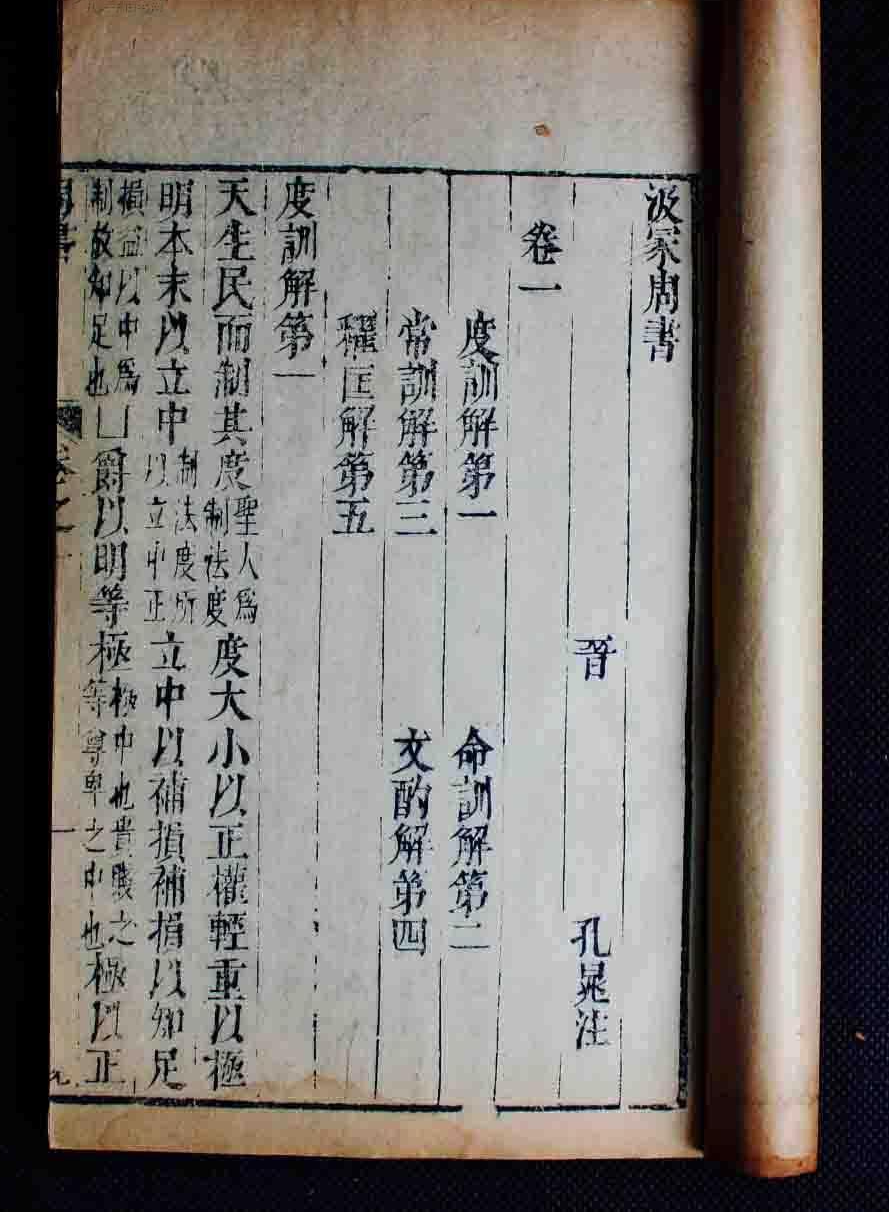 汲冢周書
晉 孔晁注
卷一
度訓解第一 命訓解第二
常訓解第三 文酌解第四
糴匡解第五
度訓解第一
天生民而制其度聖人爲制法度度大小以正權輕重以極
明本末以立中制法度所以立中正立中以補損補損以知足
損益以中爲制故知足也凵爵以明等極極中也貴賤之等尊卑之中也極以正
卷之一
一